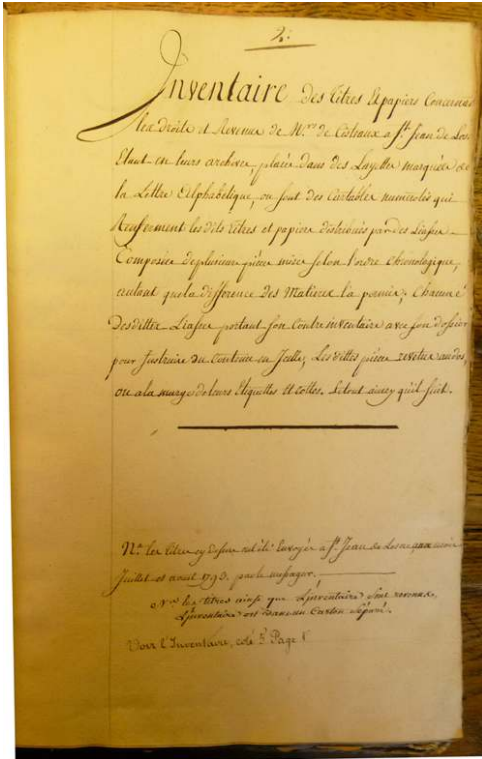 2.
Inventaire Des titres Et papiers Concernant
Les droits et Revenus de M.rs de Citeaux a St. Jean de Lone
Etant en leurs archives, placés dans des Layettes marquées de
la Lettre Alphabétique, ou sont des Cartables numerotés qui
Renferment les dits titres et papiers distribués par des Liasses
Composées de plusieurs pièces mises selon l'ordre Chronologique,
autant que la difference des Matieres l'a permis; Chacune
Desdittes Liasses portant son Contre inventaire avec son dossier
pour Instruire du Contenu en Icelle; Les dittes pièces revetues au dos,
ou a la marge de leurs Etiquettes et cottes. Le tout ainsy qu'il suit.
Na. les titres cy dessus ont été Envoyés a St. Jean de Losne aux mois
Juillet et aout 1793. par le messager.
Na. les titres ainsi que L'inventaire sont revenus,
L'inventaire est dans un Carton séparé.
Voir l'Inventaire, coté 5. Page 1